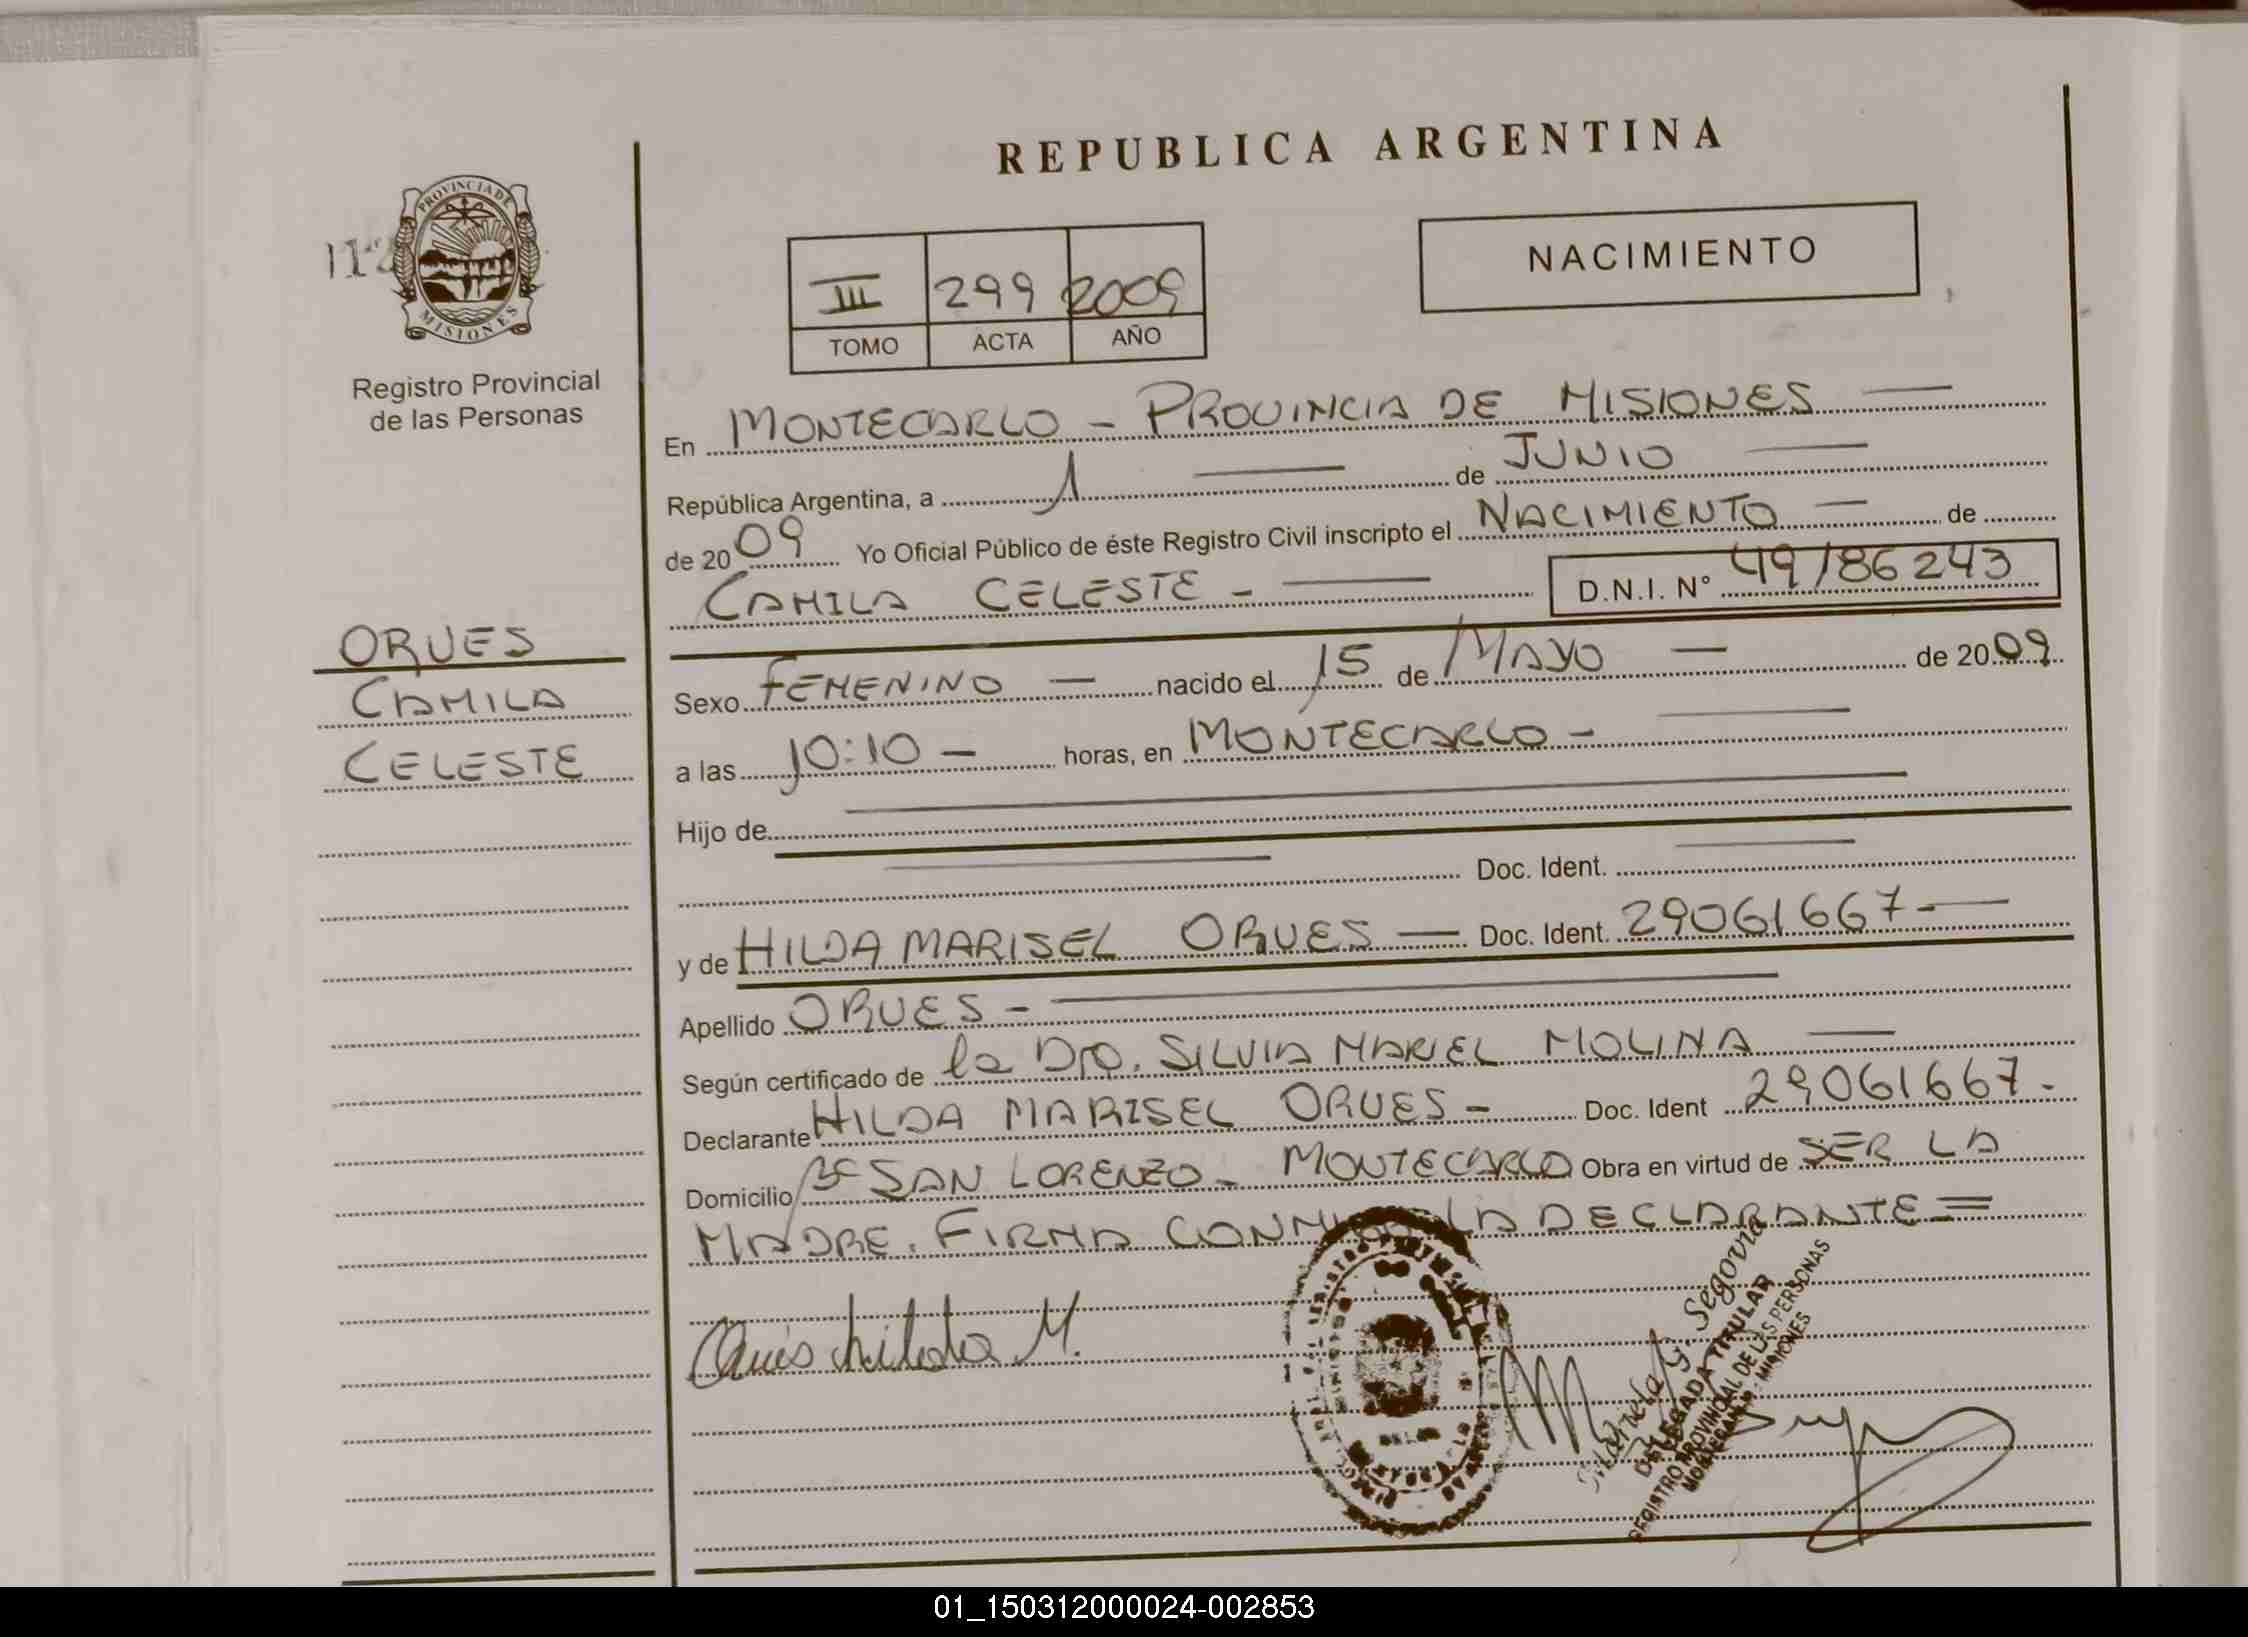 REPUBLICA ARGENTINA
PROVINCIA DE
MISIONES
Registro Provincial
de las Personas
III 299 2009
TOMO ACTA AÑO
NACIMIENTO
En MONTECARLO - PROVINCIA DE MISIONES
República Argentina, a 1 de JUNIO
de 2009 Yo Oficial Público de éste Registro Civil inscripto el NACIMIENTO de
CAMILA CELESTE - D.N.I. N° 49186243
ORUES
CAMILA
CELESTE
Sexo FEMENINO nacido el 15 de MAYO de 2009
a las 10:10 horas, en MONTECARLO -
Hijo de
Doc. Ident.
y de HILDA MARISEL ORUES Doc. Ident. 29061667 -
Apellido ORUES -
Según certificado de la Dra. SILVIA MARIEL MOLINA
Declarante HILDA MARISEL ORUES - Doc. Ident 29061667.
Domicilio Bº SAN LORENZO - MONTECARLO Obra en virtud de SER LA
MADRE. FIRMA CONMIGO LA DECLARANTE =
Orues hilda M.
Segovia
DELEGADA TITULAR
REGISTRO PROVINCIAL DE LAS PERSONAS
MISIONES
01_150312000024-002853